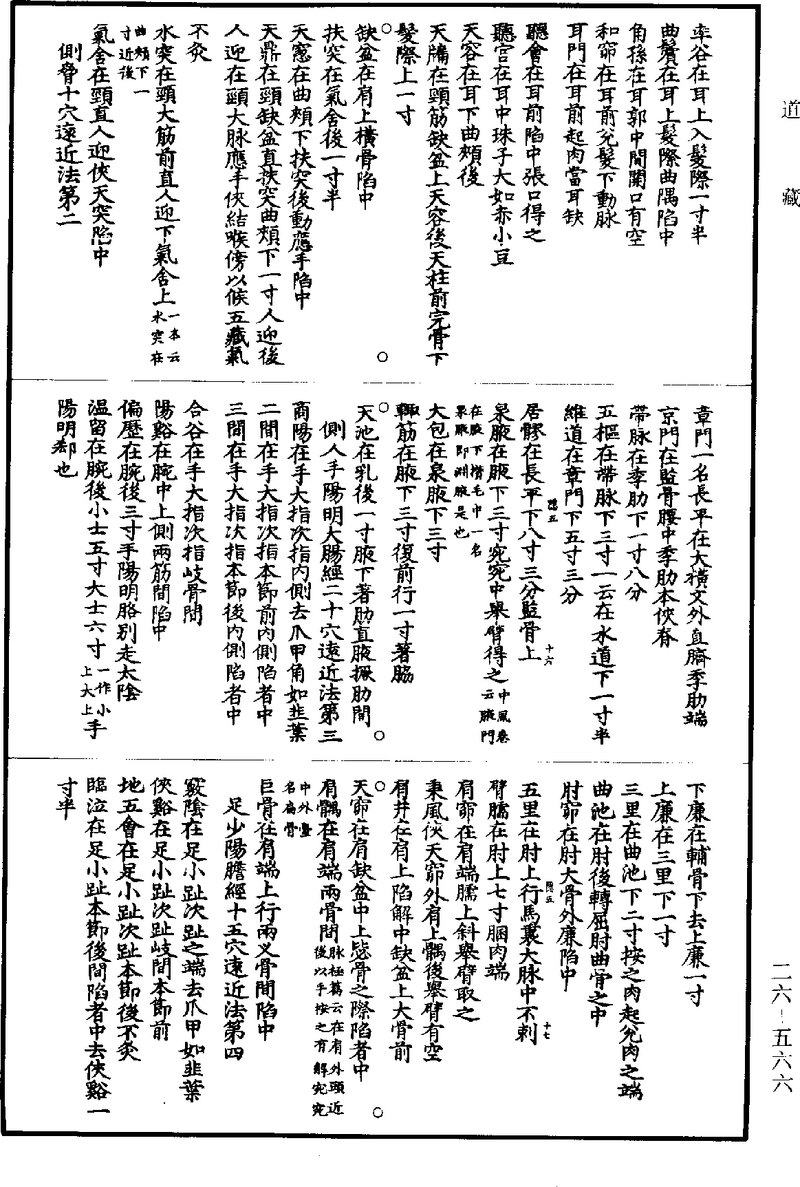 道藏
率谷在耳上入髮際一寸半
曲鬢在耳上髮際曲隅陷中
角孫在耳郭中間開口有空
和窌在耳前兊髮下動脉
耳門在耳前起肉當耳缺
聽會在耳前陷中張口得之
聽宫在耳中珠子大如赤小豆
天容在耳下曲頰後
天牖在頸筋缺盆上天容後天柱前完骨下
髮際上一寸
缺盆在肩上橫骨陷中
扶突在氣舍後一寸半
天窓在曲頰下扶突後動應手陷中
天鼎在頸缺盆直扶突曲頰下一寸人迎後
人迎在頸大脉應手俠結喉傍以候五藏氣
不灸
水突在頸大筋前直人迎下氣舍上一本云水突在
曲頰下一寸近後
氣舍在頸直人迎俠天突陷中
側脅十穴遠近法第二
章門一名長平在大橫文外直臍季肋端
京門在監骨腰中季肋本俠脊
帶脉在季肋下一寸八分
五樞在帶脉下三寸一云在水道下一寸半
維道在章門下五寸三分
居髎在長平下八寸三分監骨上
泉腋在腋下三寸宛宛中舉臂得之中風卷云腋門
在腋下攢毛中一名泉腋即淵腋是也
大包在泉腋下三寸
輒筋在腋下三寸復前行一寸著脇
天池在乳後一寸腋下著肋直腋撅肋間
側人手陽明大腸經二十穴遠近法第三
商陽在手大指次指内側去爪甲角如韭葉
二間在手大指次指本節前内側陷者中
三間在手大指次指本節後内側陷者中
合谷在手大指次指歧骨間
陽谿在腕中上側兩筋間陷中
偏歷在腕後三寸手陽明胳別走太陰
溫留在腕後小士五寸大士六寸一作小上大上手
陽明郄也
下廉在輔骨下去上廉一寸
上廉在三里下一寸
三里在曲池下二寸按之肉起兊肉之端
曲池在肘後轉屈肘曲骨之中
肘窌在肘大骨外廉陷中
五里在肘上行馬裏大脉中不刺
臂臑在肘上七寸䐃肉端
肩窌在肩端臑上斜舉臂取之
秉風俠天窌外肩上髃後舉臂有空
肩井在肩上陷解中缺盆上大骨前
天窌在肩缺盆中上毖骨之際陷者中
肩髃在肩端兩骨間脉極篇云在肩外頭近後以手按之有解宛宛
中外臺名扁骨
巨骨在肩端上行兩叉骨間陷中
足少陽膽經十五穴遠近法第四
竅陰在足小趾次趾之端去爪甲如韭葉
俠谿在足小趾次趾歧間本節前
地五會在足小趾次趾本節後不灸
臨泣在足小趾本節後間陷者中去俠谿一
寸半
二六-五六六